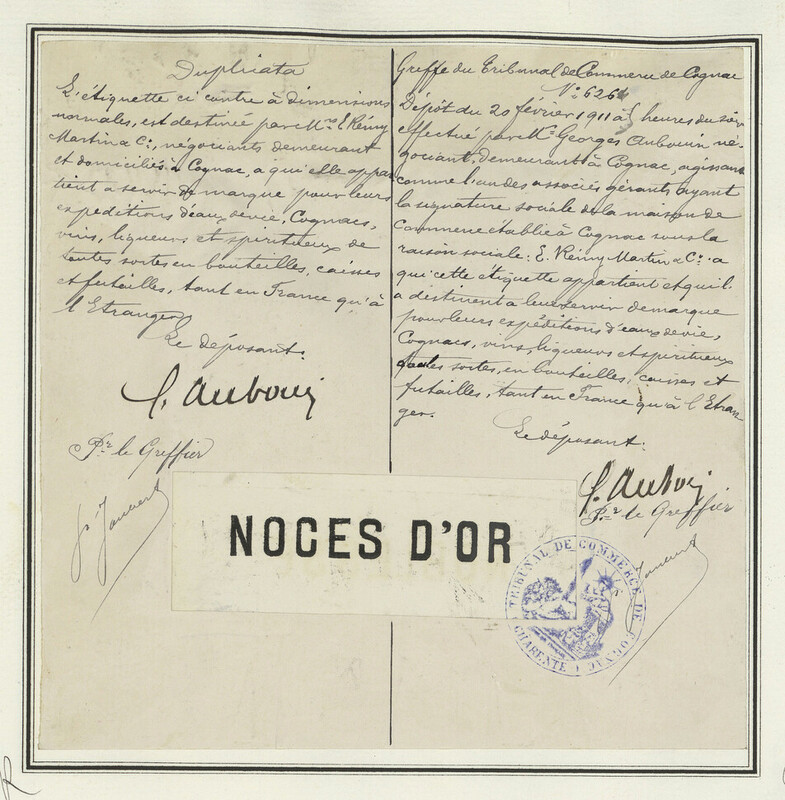 Duplicata
L'étiquette ci contre à dimensions
normales, est destinée par Mrs E. Rémy
Martin & Co, négociants demeurant
et domiciliés à Cognac, à qui elle appar
tient a servir de marque pour leurs
expéditions d'eaux de vie, Cognacs,
vins, liqueurs et spiritueux de
toutes sortes en bouteilles, caisses
et futailles, tant en France qu'à
l'Etranger
Le déposant.
Pr le Greffier
Greffe du Tribunal de Commerce de Cognac
No 6261
Dépôt du 20 février 1911 à heures du soir
effectué par Mr Georges Auboin né-
gociant, demeurant à Cognac, agissant
comme l'un des associés gérants ayant
la signature sociale de la maison de
Commerce établie à Cognac sous la
raison sociale: E. Rémy Martin & Co. a
qui cette étiquette appartient et qu'il
a destinent a leur servir de marque
pour leurs expéditions d'eaux de vie,
Cognacs, vins, liqueurs et spiritueux
toutes sortes, en bouteilles, caisses et
futailles, tant en France qu'à l'Etran
ger.
Le déposant.
Pr le Greffier
NOCES D'OR
TRIBUNAL DE COMMERCE DE COGNAC
CHARENTE